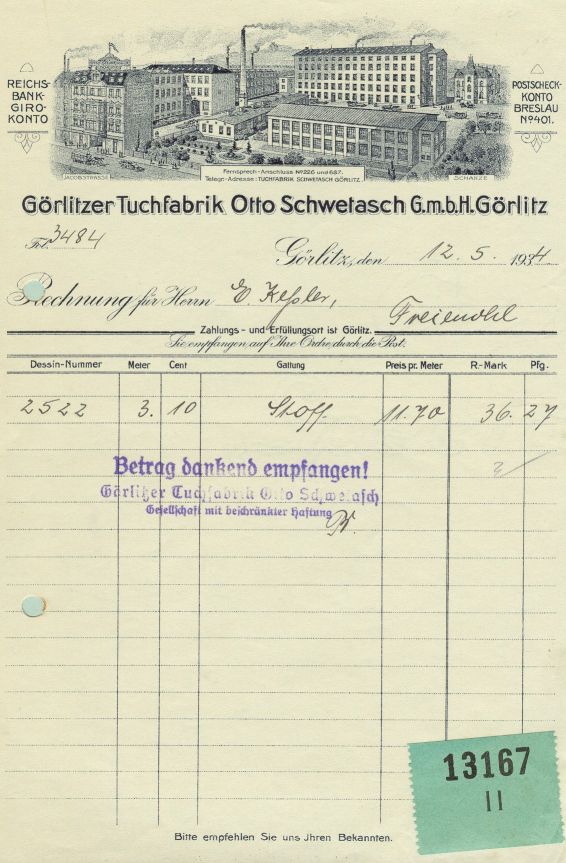 REICHS-
BANK-
GIRO-
KONTO
POSTSCHECK-
KONTO
BRESLAU
No 401.
JACOBSTRASSE
Fernsprech-Anschluss No 226 und 687.
Telegr.-Adresse: TUCHFABRIK SCHWETASCH GÖRLITZ.
SCHANZE
Görlitzer Tuchfabrik Otto Schwetasch G.m.b.H. Görlitz
3484
Görlitz, den 12. 5. 1934
Rechnung für Herrn E. Keßler,
Zahlungs- und Erfüllungsort ist Görlitz.
Sie empfangen auf Ihre Ordre durch die Post:
Dessin-Nummer Meter Cent Gattung Preis pr. Meter R.-Mark Pfg.
2522 3. 10 Stoff 11.70 36. 27
Betrag dankend empfangen!
Görlitzer Tuchfabrik Otto Schwetasch
Gesellschaft mit beschränkter Haftung
13167
II
Bitte empfehlen Sie uns Jhren Bekannten.